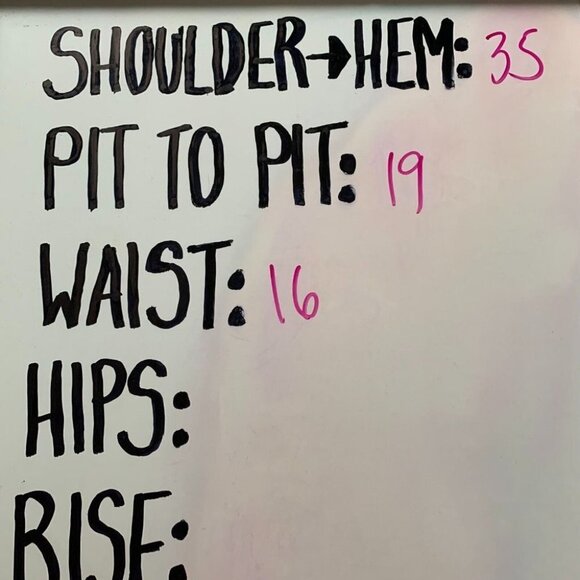 SHOULDER→HEM: 35
PIT TO PIT: 19
WAIST: 16
HIPS:
RISE: